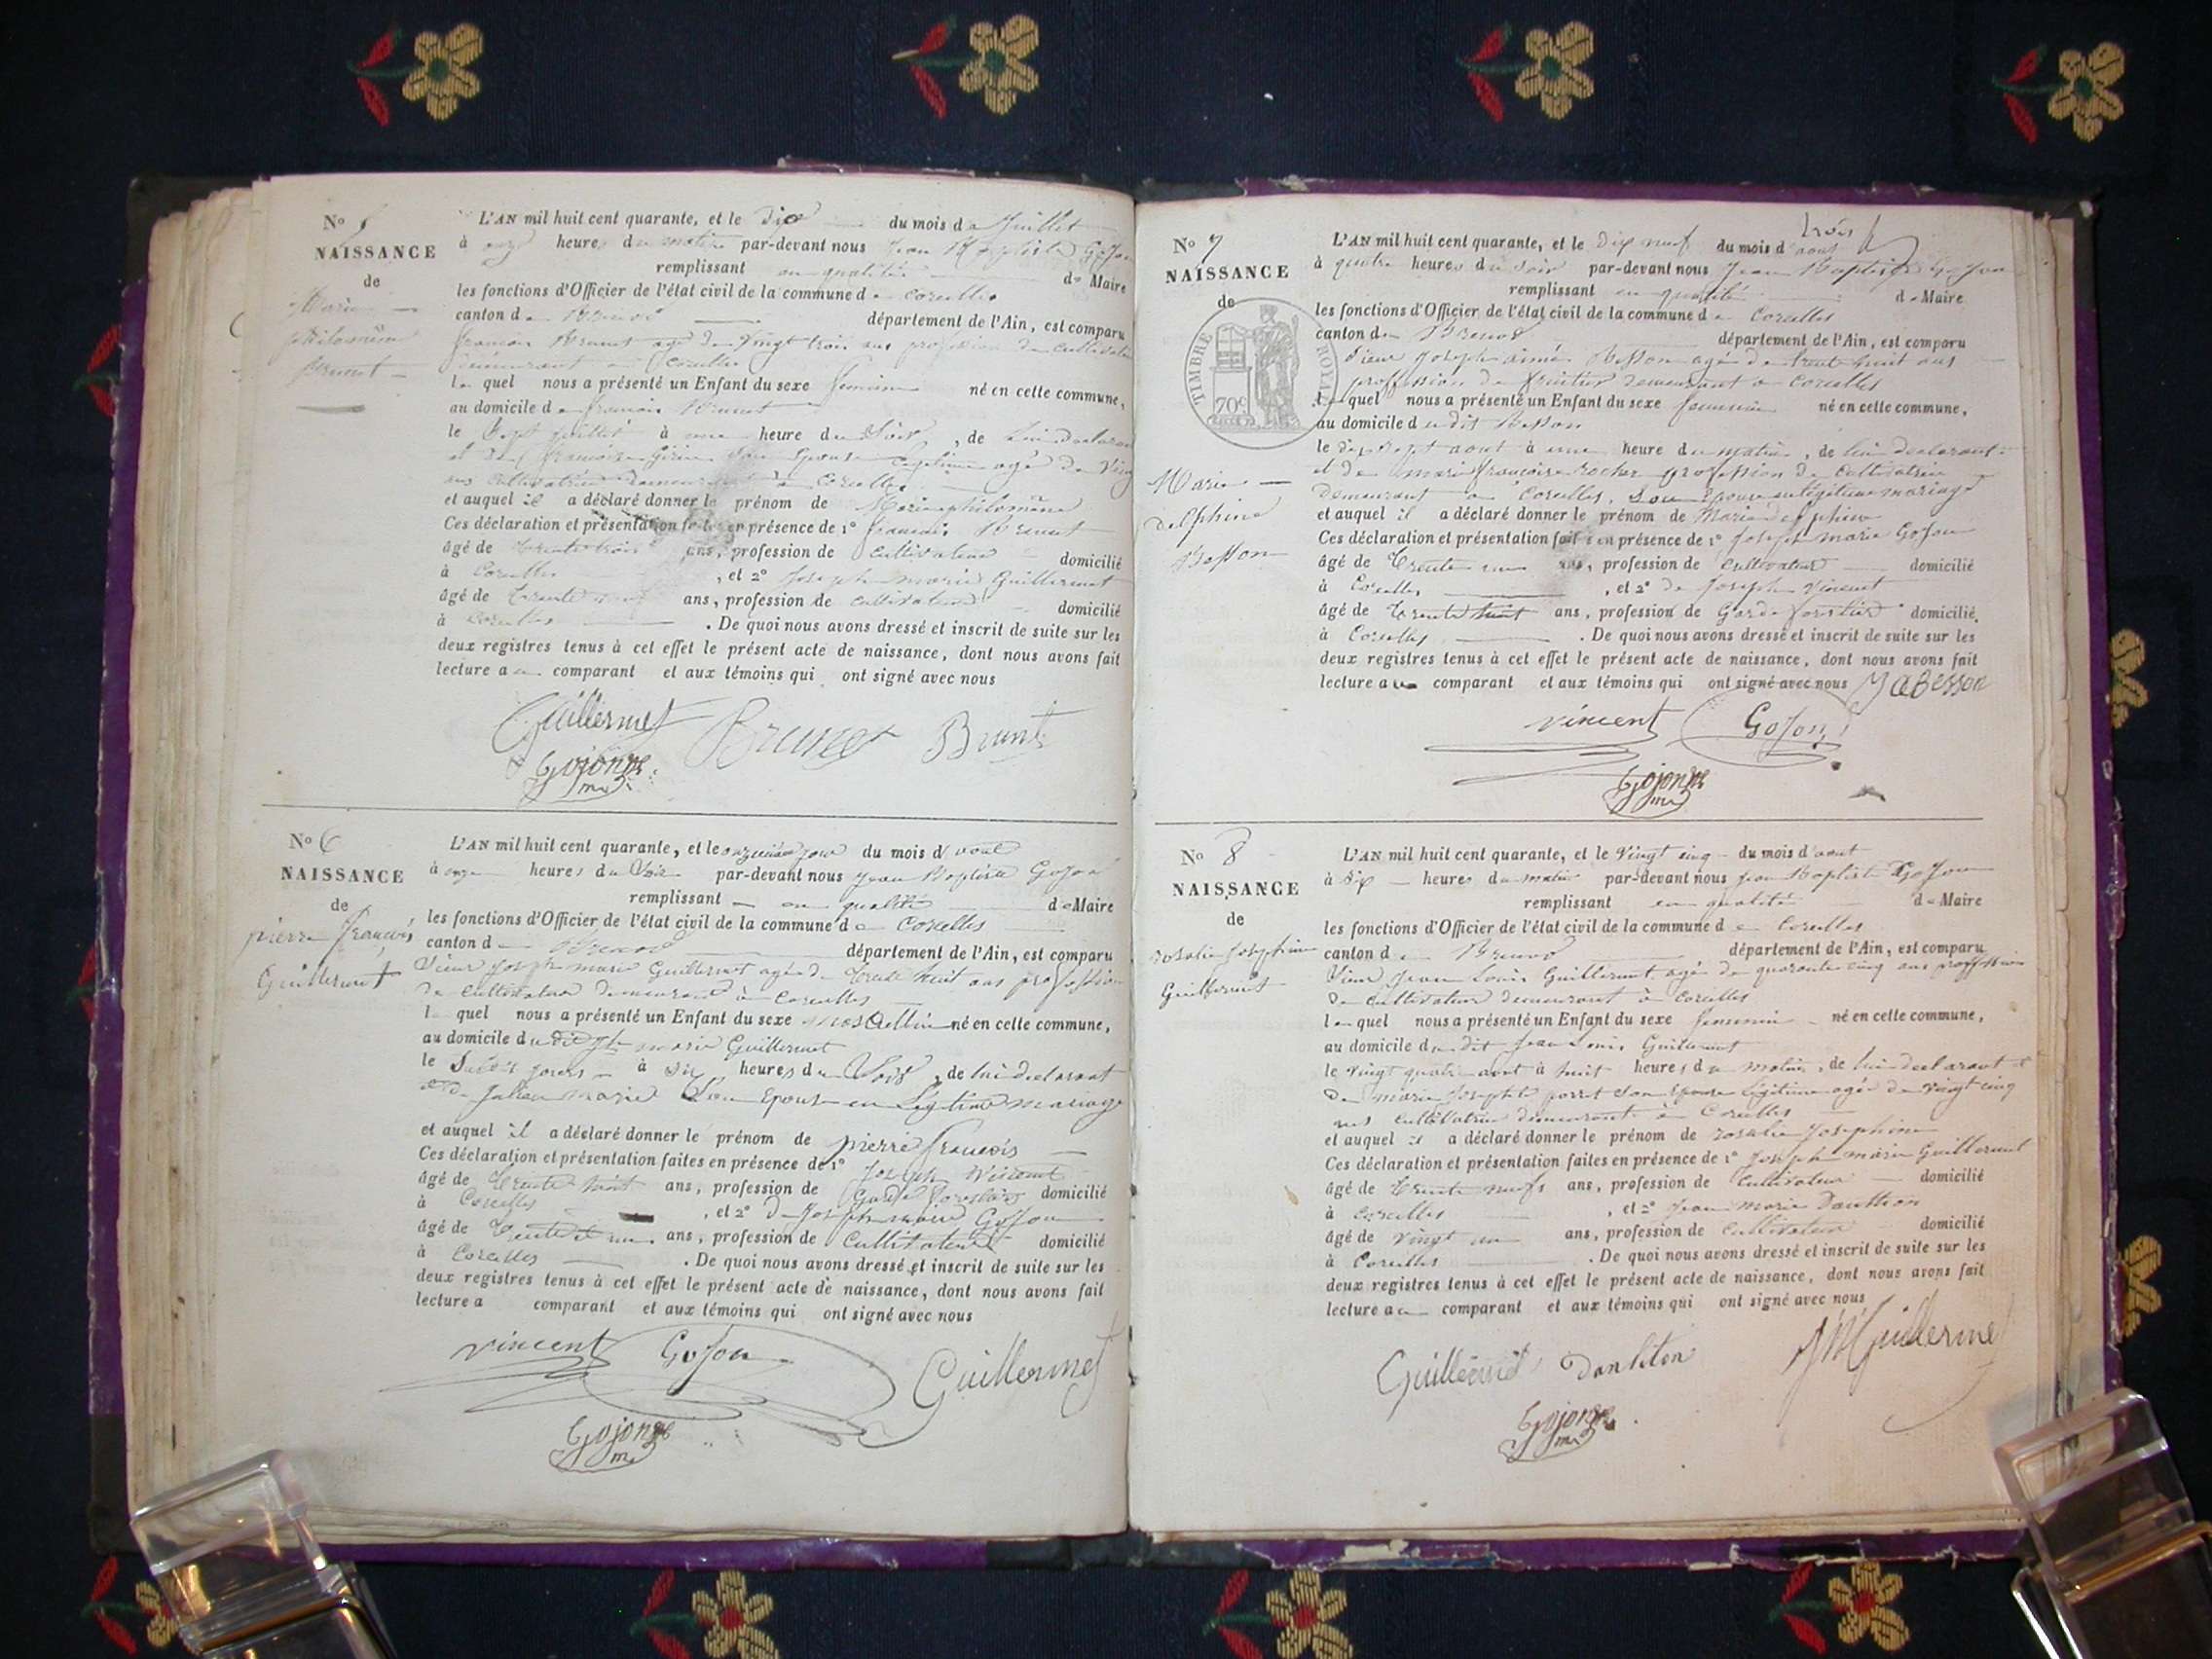 N° 5
NAISSANCE
de
Marie
philomène
Brunet
L'AN mil huit cent quarante, et le dix du mois de Juillet
à onze heures du matin par-devant nous Jean Baptiste Gojon
remplissant en qualité de Maire
les fonctions d'Officier de l'état civil de la commune de Corcelles
canton de Brenod département de l'Ain, est comparu
françois Brunet agé de Vingt trois ans profession de cultivateur
demeurant a Corcelles
lequel nous a présenté un Enfant du sexe feminin né en cette commune,
au domicile de françois Brunet
le Juillet à une heure du Soir, de lui declarant
et de françoise son Epouse légitime agé de Vingt
ans cultivatrice demeurant à Corcelles
et auquel il a déclaré donner le prénom de Marie philomène
Ces déclaration et présentation faites en présence de 1° françois Brunet
âgé de trente trois ans, profession de Cultivateur domicilié
à Corcelles, et 2° Joseph marie Guillermet
âgé de trente ans, profession de cultivateur domicilié
à Corcelles. De quoi nous avons dressé et inscrit de suite sur les
deux registres tenus à cet effet le présent acte de naissance, dont nous avons fait
lecture au comparant et aux témoins qui ont signé avec nous
Guillermet Brunet Brunet
Gojon me
N° 6
NAISSANCE
de
pierre françois
Guillermet
L'AN mil huit cent quarante, et le onzieme jour du mois d'aout
à onze heures du Soir par-devant nous Jean Baptiste Gojon
remplissant en qualité de Maire
les fonctions d'Officier de l'état civil de la commune de Corcelles
canton de Brenod département de l'Ain, est comparu
Sieur Joseph marie Guillermet agé de trente huit ans profession
de cultivateur demeurant à Corcelles
lequel nous a présenté un Enfant du sexe mascullin né en cette commune,
au domicile du dit Jph marie Guillermet
le Susdit jours à six heures du Soir, de lui declarant
et de marie Son Epouse en Légitime mariage
et auquel il a déclaré donner le prénom de pierre françois
Ces déclaration et présentation faites en présence de 1° Joseph Vincent
âgé de trente huit ans, profession de Garde forestier domicilié
à Corcelles, et 2° de Joseph marie Gojon
âgé de trente et un ans, profession de Cultivateur domicilié
à Corcelles. De quoi nous avons dressé et inscrit de suite sur les
deux registres tenus à cet effet le présent acte de naissance, dont nous avons fait
lecture a comparant et aux témoins qui ont signé avec nous
vincent Gojon Guillermet
Gojon me
N° 7
NAISSANCE
de
TIMBRE ROYAL
70c
Marie
delphine
Besson
trois
L'AN mil huit cent quarante, et le dix neuf du mois d'aout
à quatre heures du soir par-devant nous Jean Baptiste Gojon
remplissant en qualité de Maire
les fonctions d'Officier de l'état civil de la commune de Corcelles
canton de Brenod département de l'Ain, est comparu
Sieur Joseph aimé Besson agé de trente huit ans
proffession de fruitier demeurant a Corcelles
lequel nous a présenté un Enfant du sexe feminin né en cette commune,
au domicile du dit Besson
le dix sept aout à une heure du matin, de lui declarant
et de marie françoise rocher proffession de cultivatrice
demeurant a Corcelles, Son Epouse en légitime mariage
et auquel il a déclaré donner le prénom de Marie delphine
Ces déclaration et présentation faites en présence de 1° Joseph marie Gojon
âgé de trente un ans, profession de cultivateur domicilié
à Corcelles, et 2° de Joseph Vincent
âgé de trente huit ans, profession de Garde forestier domicilié
à Corcelles. De quoi nous avons dressé et inscrit de suite sur les
deux registres tenus à cet effet le présent acte de naissance, dont nous avons fait
lecture au comparant et aux témoins qui ont signé avec nous J a Besson
vincent Gojon
Gojon me
N° 8
NAISSANCE
de
rosalie Josephine
Guillermet
L'AN mil huit cent quarante, et le Vingt cinq du mois d'aout
à dix heures du matin par-devant nous Jean Baptiste Gojon
remplissant en qualité de Maire
les fonctions d'Officier de l'état civil de la commune de Corcelles
canton de Brenod département de l'Ain, est comparu
Sieur Jean Louis Guillermet agé de quarante cinq ans proffession
de cultivateur demeurant à Corcelles
lequel nous a présenté un Enfant du sexe feminin né en cette commune,
au domicile du dit Jean Louis Guillermet
le vingt quatre aout à huit heures du matin, de lui declarant et
de marie Josephte Son Epouse légitime agée de vingt cinq
ans cultivatrice demeurant à Corcelles
et auquel il a déclaré donner le prénom de rosalie Josephine
Ces déclaration et présentation faites en présence de 1° Joseph marie Guillermet
âgé de trente neufs ans, profession de Cultivateur domicilié
à Corcelles, et 2° Jean marie
âgé de vingt un ans, profession de cultivateur domicilié
à Corcelles. De quoi nous avons dressé et inscrit de suite sur les
deux registres tenus à cet effet le présent acte de naissance, dont nous avons fait
lecture au comparant et aux témoins qui ont signé avec nous
Guillermet Jm Guillermet
Gojon me